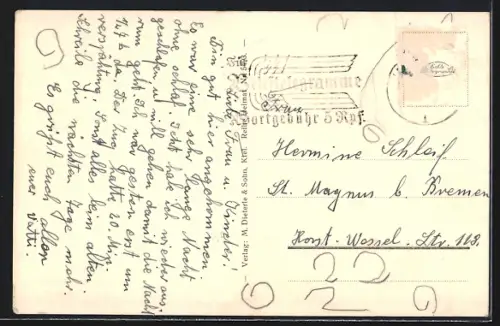 Liebe Frau u. Kinder!
Bin gut hier angekommen
Es war eine sehr lange Nacht
ohne schlaf. Jetzt habe ich wieder aus
geschlafen u. will gehen damit die Nacht
rum geht. Ich war gestern erst um
da. Der Zug hatte 20 Min
verspähtung. Sonst alles beim alten
Schreibe die nächsten Tage mehr.
Es grüßt euch allen
euer Vati.
Verlag: M. Dieterle & Sohn, Kiel. Reihe Heimat
Telegramme
Ortgebühr 5 Rpf.
Frau
Hermine Schleif
St. Magnus b. Bremen
Horst-Wessel-Str. 118.
22